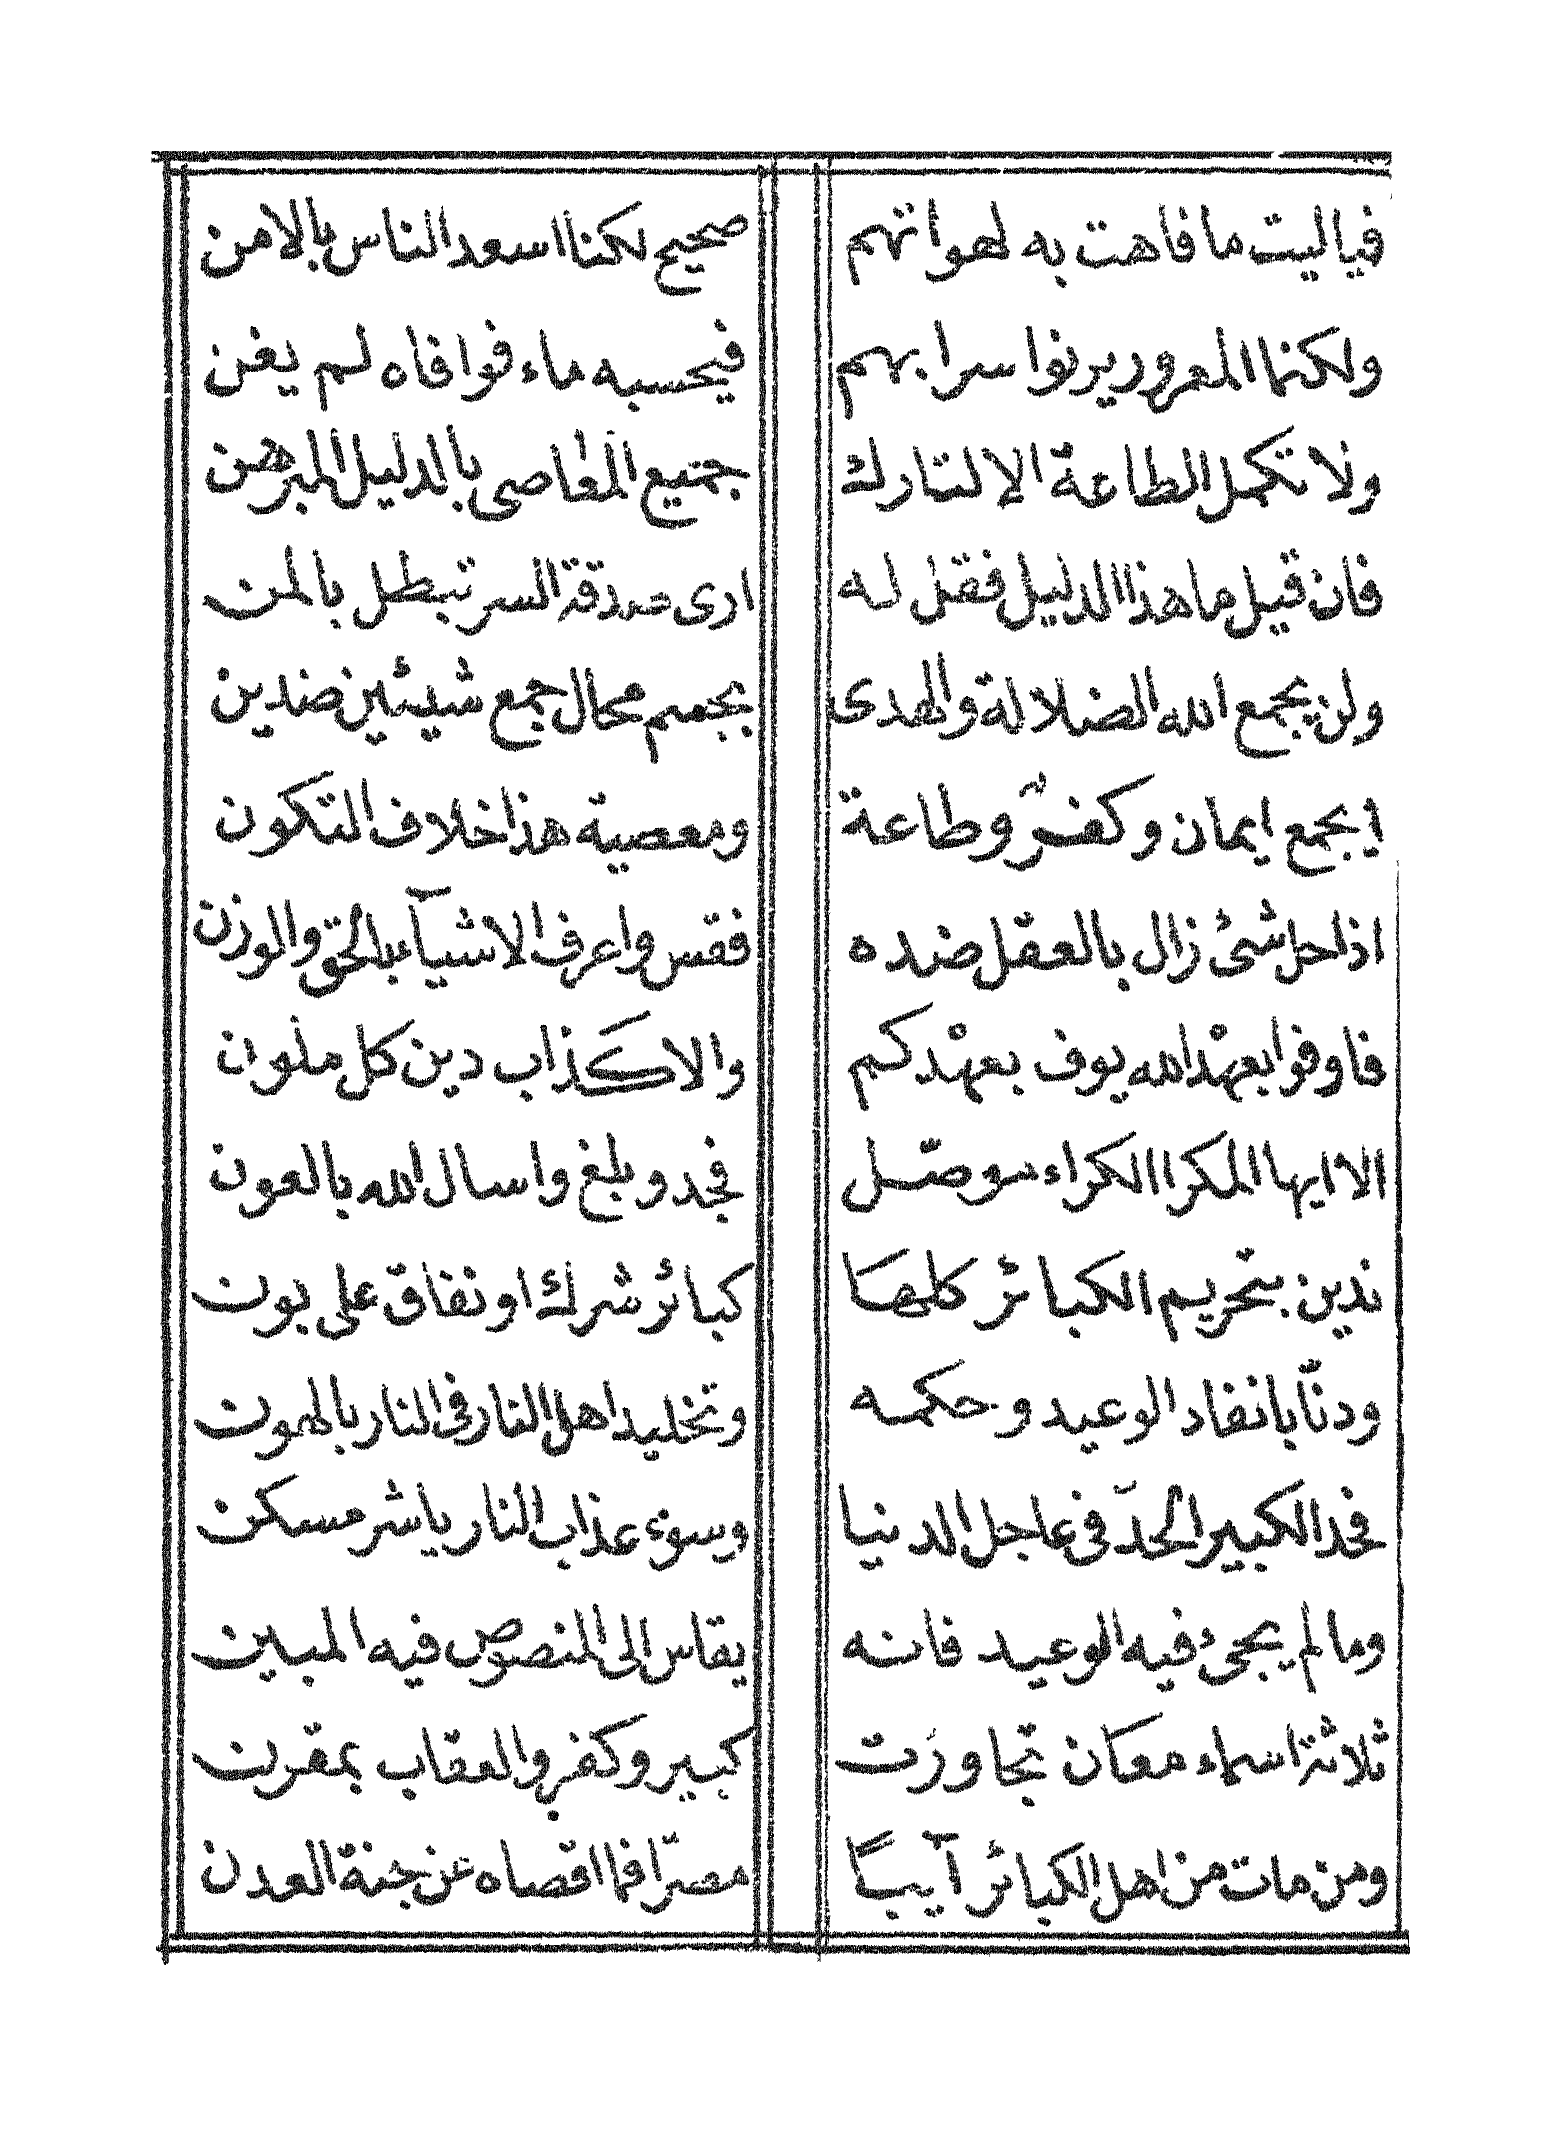 فياليت ما فاهت به لهواتهم صحيح لكنا اسعد الناس بالامن
ولكنما المغرور يرنوا سرابهم فيحسبه ماء فوافاه لم يغن
ولا تكمل الطاعة الا لتارك جميع المعاصى بالدليل المبرهن
فان قيل ما هذا الدليل فقل له ارى صدقة السر تبطل بالمن
ولن يجمع الله الضلالة والهدى بجسم محال جمع شيئين ضدين
ايجمع ايمان وكفر وطاعة ومعصية هذا خلاف التكون
اذا حل شئ زال بالعقل ضده فقس واعرف الاشيآء بالحق والوزن
فاوفوا بعهد الله يوف بعهدكم والاكذاب دين كل ملون
الا ايها المكرا الكراء سوصل فجد وبلغ واسال الله بالعون
ندين بتحريم الكبائر كلها كبائر شرك او نفاق على بون
ودنّا بانفاد الوعيد وحكمه وتخليد اهل النار فى النار بالهون
فحد الكبير الحدّ فى عاجل الدنيا وسوء عذاب النار ياشر مسكن
وما لم يجئ فيه الوعيد فانه يقاس الى المنصوص فيه المبين
ثلاثة اسماء معان تجاورت كبير وكفر والعقاب بمقرن
ومن مات من اهل الكبائر آيبًا مصرّا فما اقصاه عن جنة العدن